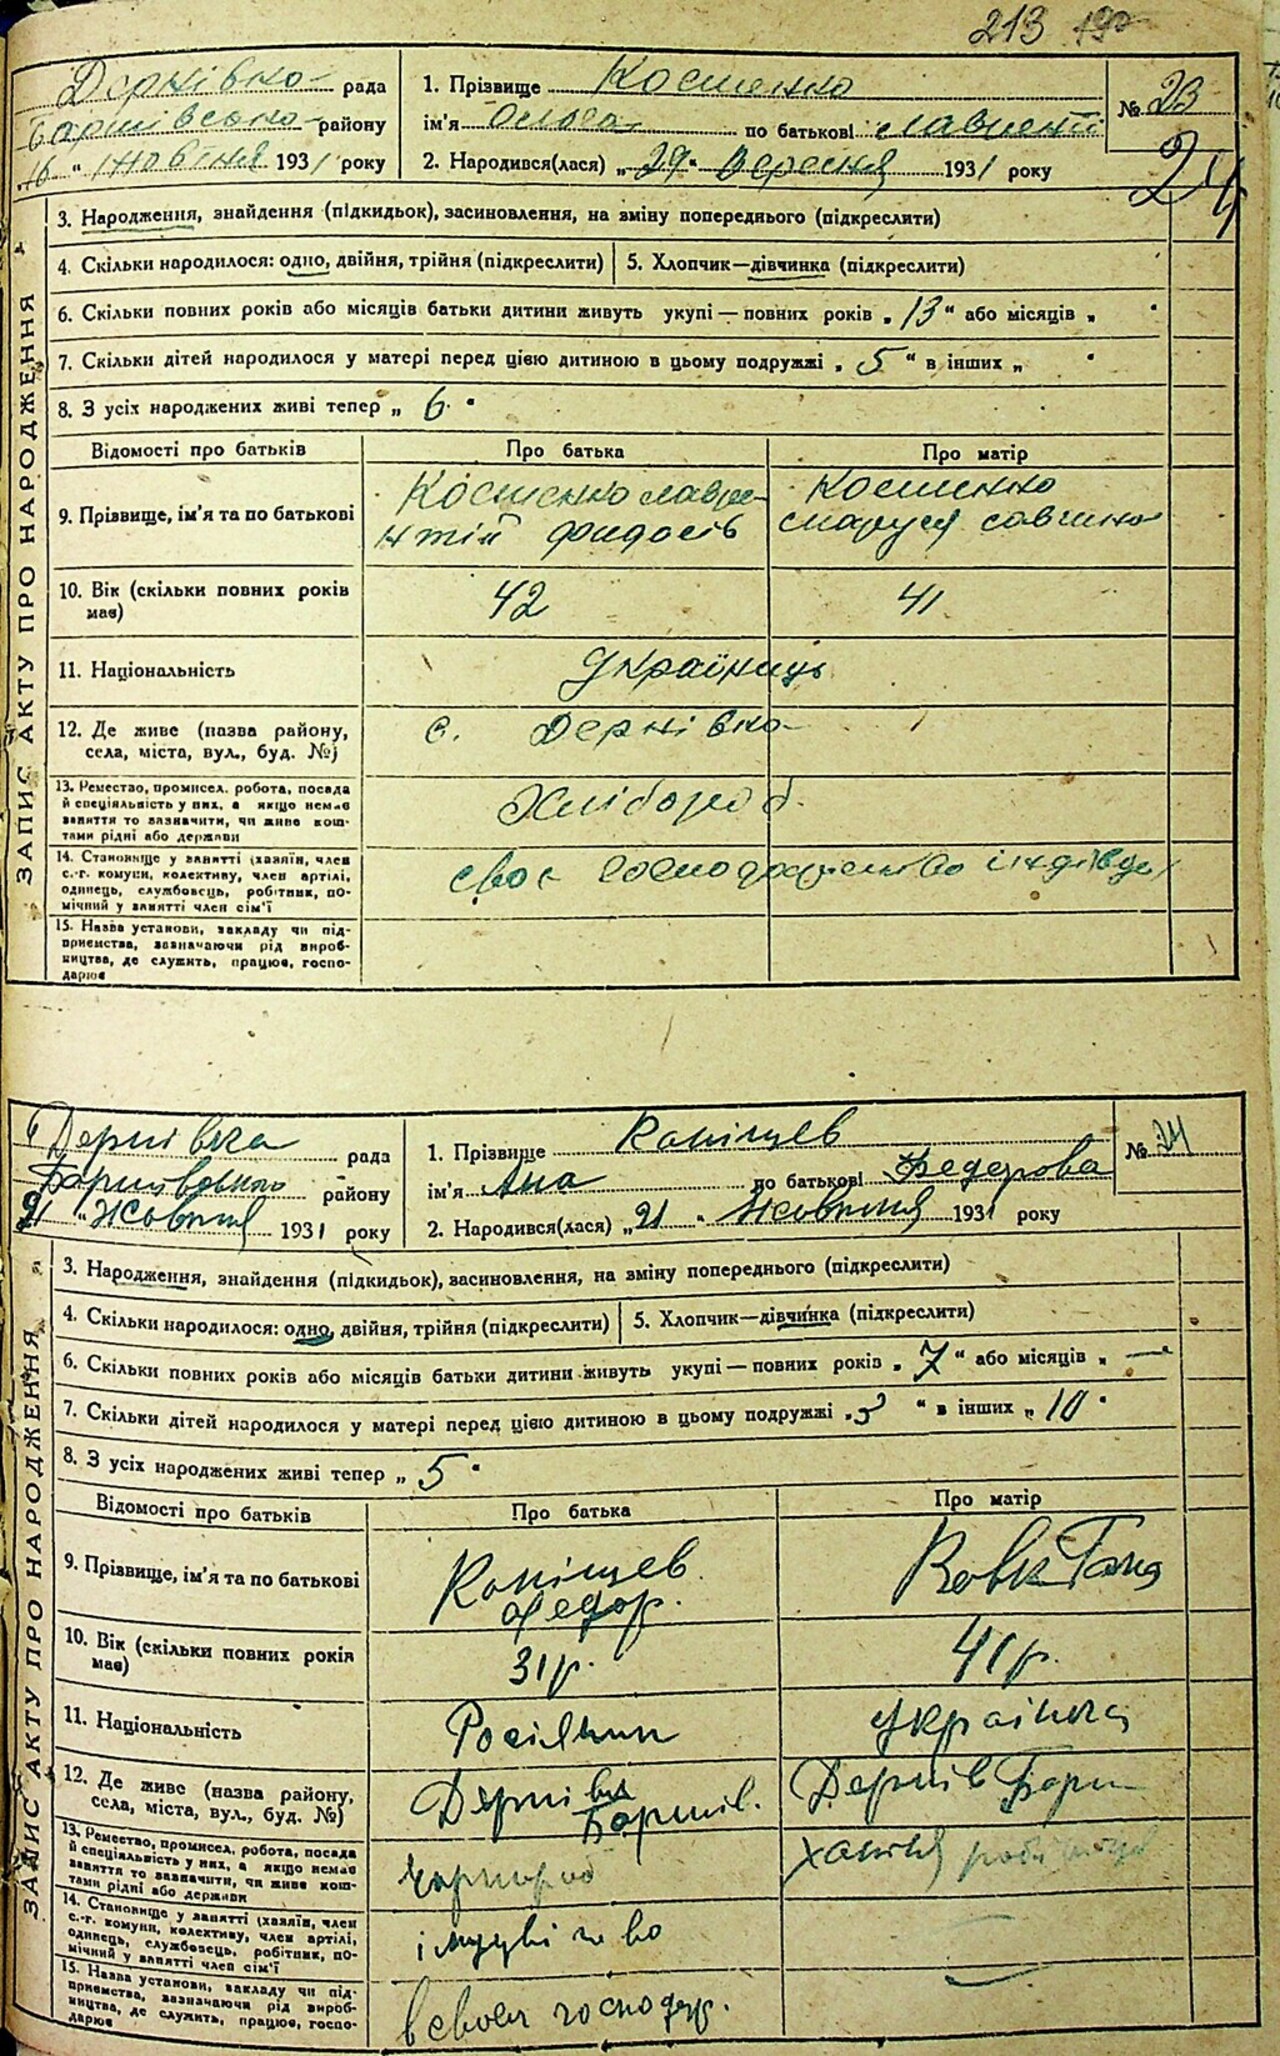 213
Дернівка рада
Баришівсько району
„16“ Жовтня 1931 року
1. Прізвище Костенко
ім'я Ольга по батькові Лаврентії
2. Народився(лася) „29“ Вересня 1931 року
№ 23
24
ЗАПИС АКТУ ПРО НАРОДЖЕННЯ
3. Народження, знайдення (підкидьок), засиновлення, на зміну попереднього (підкреслити)
4. Скільки народилося: одно, двійня, трійня (підкреслити)
5. Хлопчик—дівчинка (підкреслити)
6. Скільки повних років або місяців батьки дитини живуть укупі — повних років „13“ або місяців „ “
7. Скільки дітей народилося у матері перед цією дитиною в цьому подружжі „5“ в інших „ “
8. З усіх народжених живі тепер „6“
Відомості про батьків
Про батька
Про матір
9. Прізвище, ім'я та по батькові
Костенко Лавре-
нтій Фидосів
Костенко
Маруся Савична
10. Вік (скільки повних років
має)
42
41
11. Національність
Українць
12. Де живе (назва району,
села, міста, вул., буд. №)
с. Дернівка
13. Ремество, промисел, робота, посада
й спеціяльність у них, а якщо немає
заняття то зазначити, чи живе кош-
тами рідні або держави
Хлібороб.
14. Становище у занятті (хазяїн, член
с.-г. комуни, колективу, член артілі,
одинець, службовець, робітник, по-
мічний у занятті член сім'ї
своє господарство індівід
15. Назва установи, закладу чи під-
приємства, зазначаючи рід вироб-
ництва, де служить, працює, госпо-
дарює
Дернівка рада
Баришівського району
„21“ Жовтня 1931 року
1. Прізвище Копішев
ім'я Ана по батькові Федорова
2. Народився(лася) „21“ Жовтня 1931 року
№ 24
ЗАПИС АКТУ ПРО НАРОДЖЕННЯ
3. Народження, знайдення (підкидьок), засиновлення, на зміну попереднього (підкреслити)
4. Скільки народилося: одно, двійня, трійня (підкреслити)
5. Хлопчик—дівчинка (підкреслити)
6. Скільки повних років або місяців батьки дитини живуть укупі — повних років „7“ або місяців „—“
7. Скільки дітей народилося у матері перед цією дитиною в цьому подружжі „3“ в інших „10“
8. З усіх народжених живі тепер „5“
Відомості про батьків
Про батька
Про матір
9. Прізвище, ім'я та по батькові
Копішев
Федор.
Вовк Ганя
10. Вік (скільки повних років
має)
31р.
41р.
11. Національність
Росіянин
Українка
12. Де живе (назва району,
села, міста, вул., буд. №)
Дернівка
Баришів.
Дернів Бари
13. Ремество, промисел, робота, посада
й спеціяльність у них, а якщо немає
заняття то зазначити, чи живе кош-
тами рідні або держави
чорнороб
хатня
14. Становище у занятті (хазяїн, член
с.-г. комуни, колективу, член артілі,
одинець, службовець, робітник, по-
мічний у занятті член сім'ї
15. Назва установи, закладу чи під-
приємства, зазначаючи рід вироб-
ництва, де служить, працює, госпо-
дарює
в своєм господар.